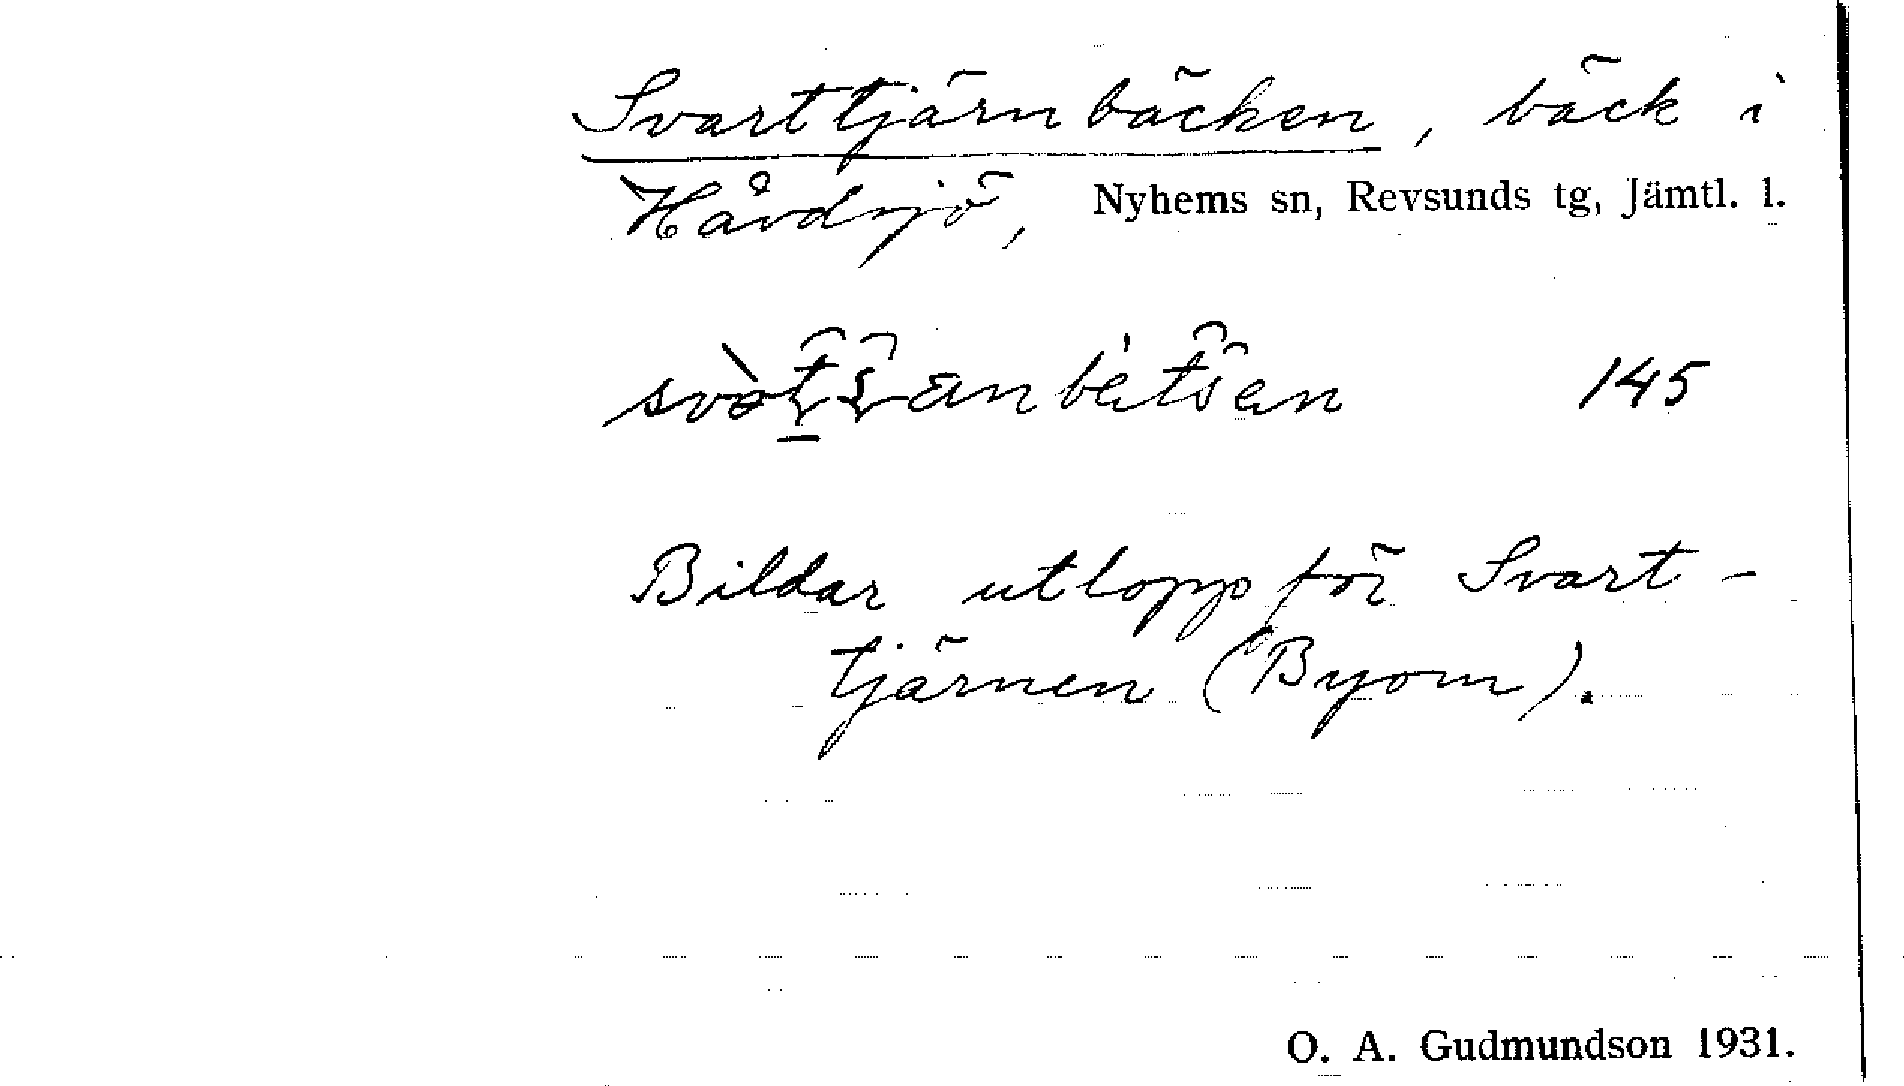 Svarttjärnbäcken, bäck i
Håvdsjö, Nyhems sn, Revsunds tg, Jämtl. l.
145
Bildar utlopp för Svart-
tjärnen (Byom).
O. A. Gudmundson 1931.